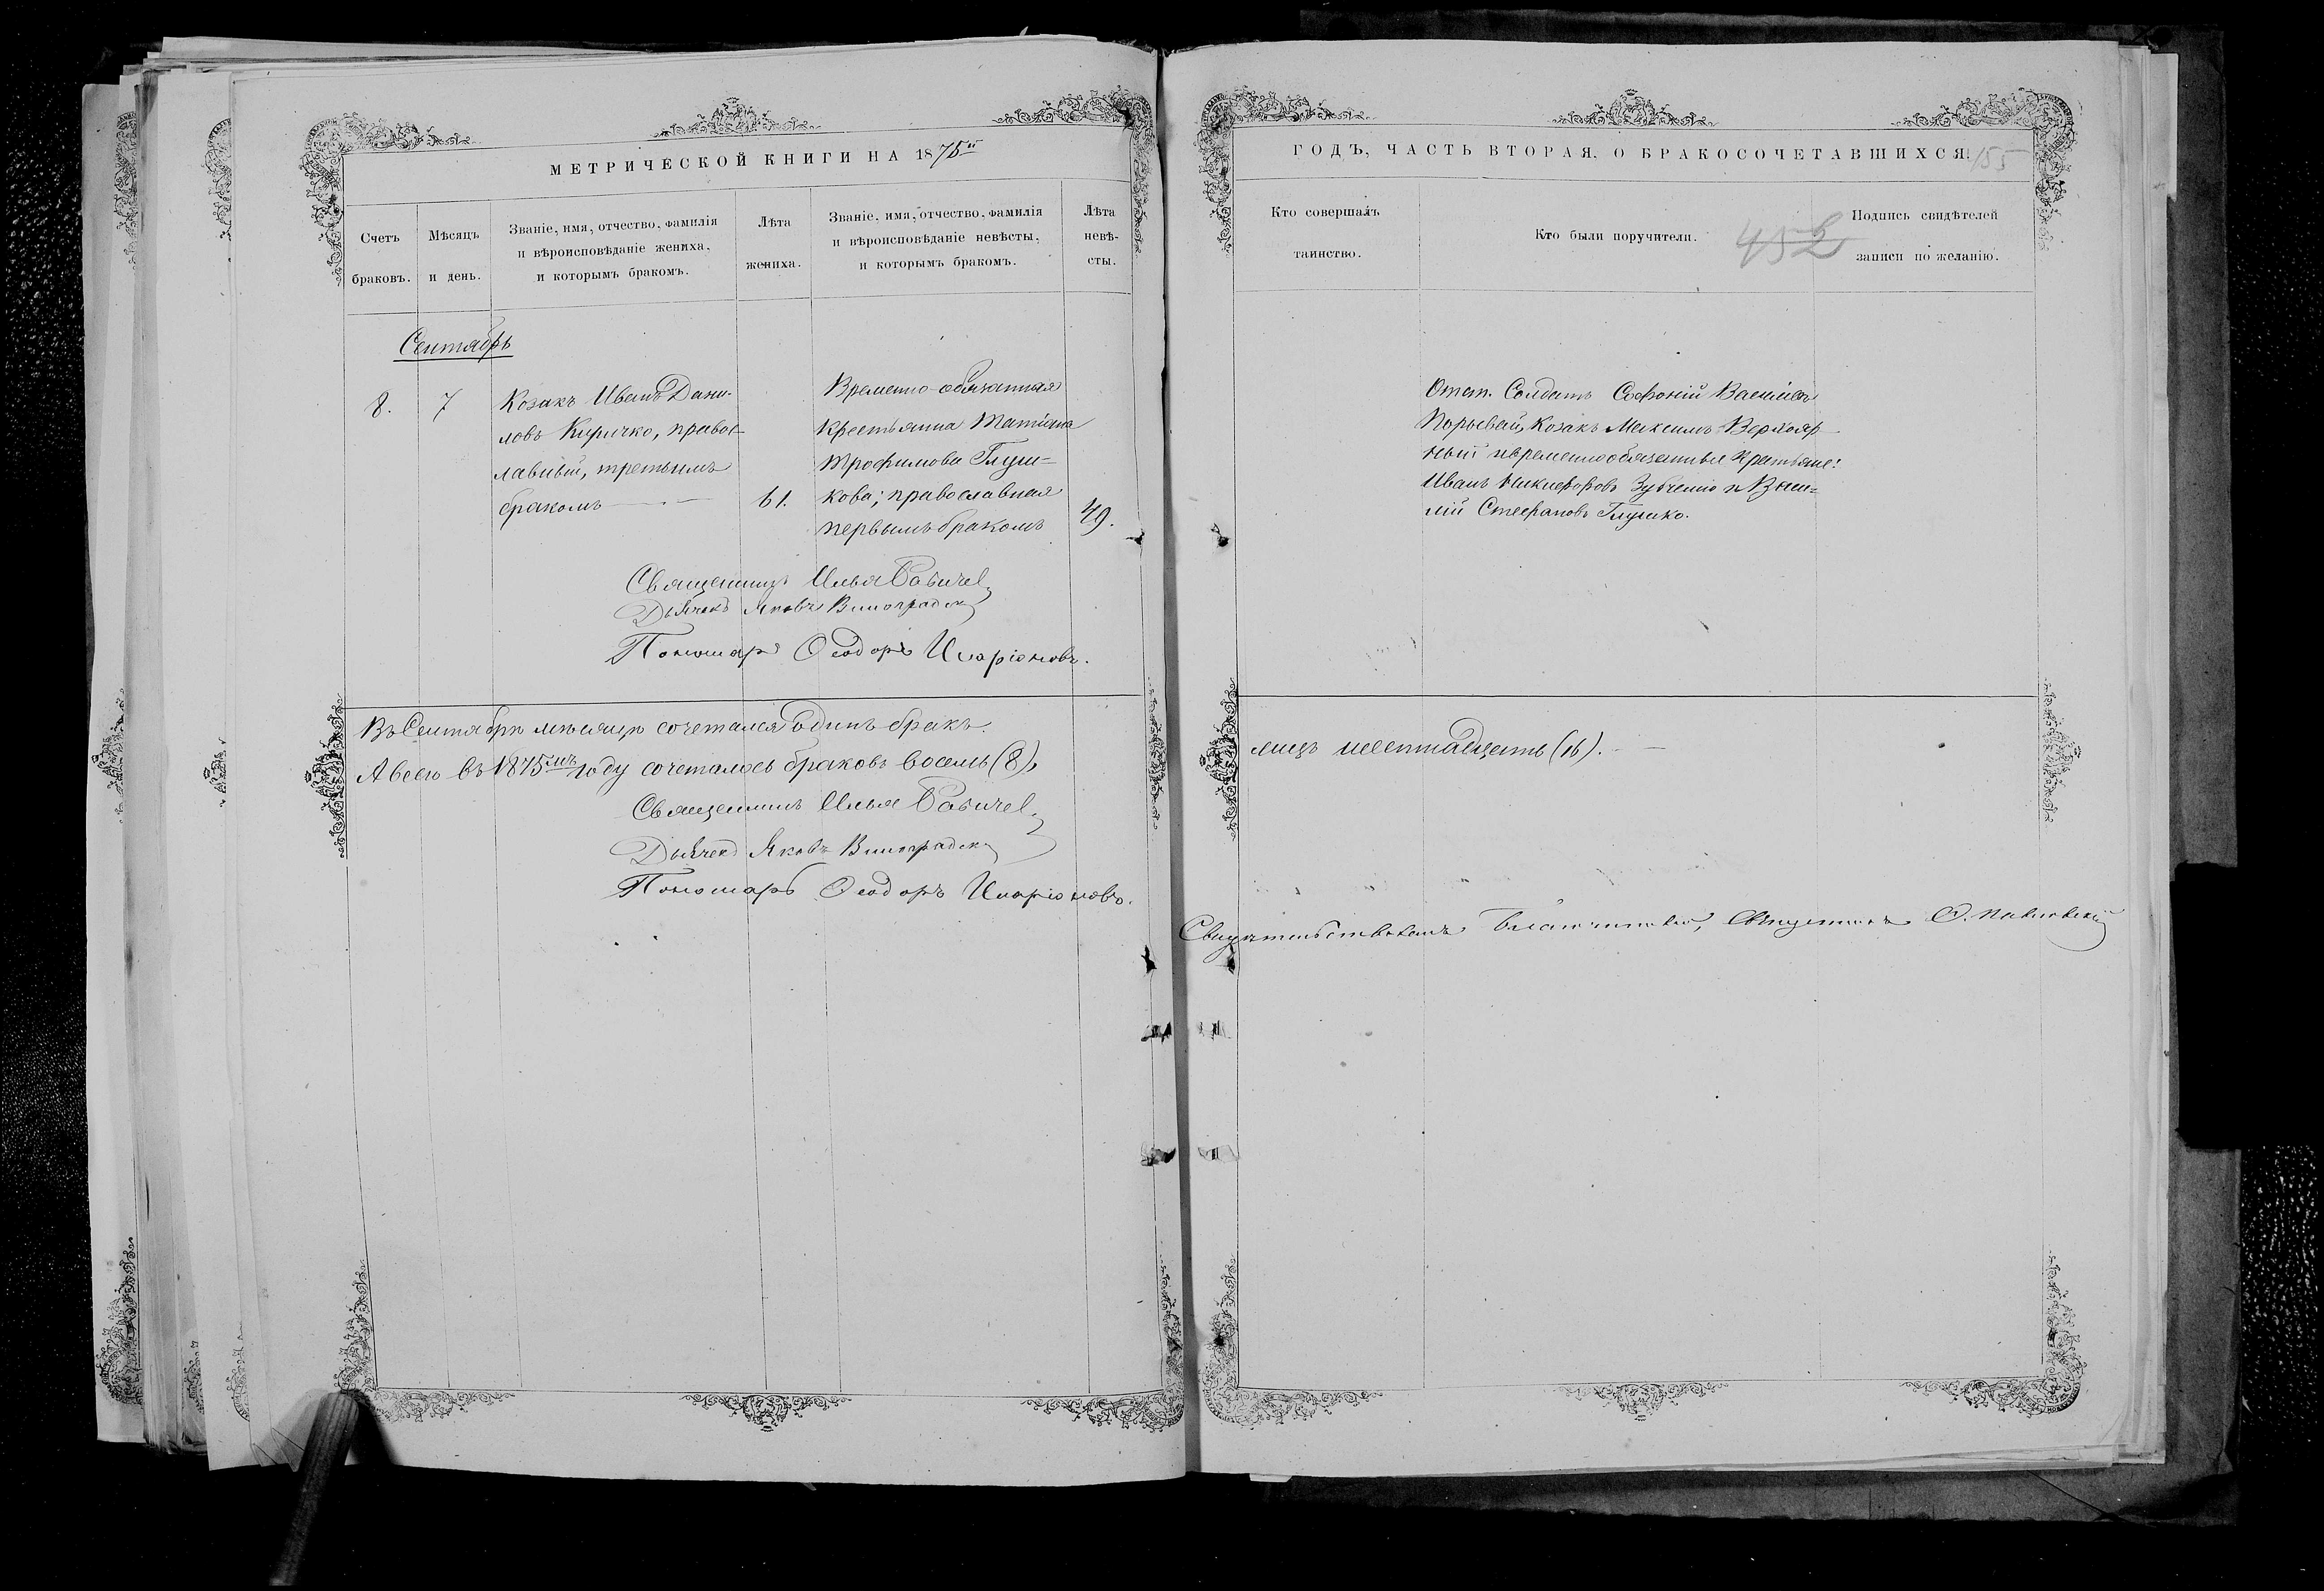 МЕТРИЧЕСКОЙ КНИГИ НА 1875й
Счетъ браковъ.
Мѣсяцъ и день.
Званіе, имя, отчество, фамилія и вѣроисповѣданіе жениха, и которымъ бракомъ.
Лѣта жениха.
Званіе, имя, отчество, фамилія и вѣроисповѣданіе невѣсты, и которымъ бракомъ.
Лѣта невѣ-сты.
Сентябрь
8.
7
Козакъ Иванъ Дани-
ловъ Киричко, правос-
лавный, третьимъ
бракомъ
61.
Временно-обязанная
крестьянка Татіана
Трофимова Глуш-
кова; православная
первымъ бракомъ
49.
Священникъ Илья
Дьячекъ Яковъ
Пономарь Ѳеодоръ Иларіоновъ.
Въ Сентябрѣ мѣсяцѣ сочетался одинъ бракъ.
А всего въ 1875мъ году сочеталось браковъ восемь (8),
Священникъ Илья
Дьячекъ Яковъ
Пономарь Ѳеодоръ Иларіоновъ.
ГОДЪ, ЧАСТЬ ВТОРАЯ, О БРАКОСОЧЕТАВШИХСЯ.
155
Кто совершалъ таинство.
Кто были поручители.
452
Подпись свидѣтелей записи по желанію.
Отст. Солдатъ Софоній Васильевъ
Козакъ Максимъ Верхояр-
ный и временнообязанные крестьяне:
Иванъ Никифоровъ Зубченко и Васи-
лій Стефановъ Глушко.
лицъ шестнадцать (16).
Свидѣтельствовалъ Благочинный, Священникъ